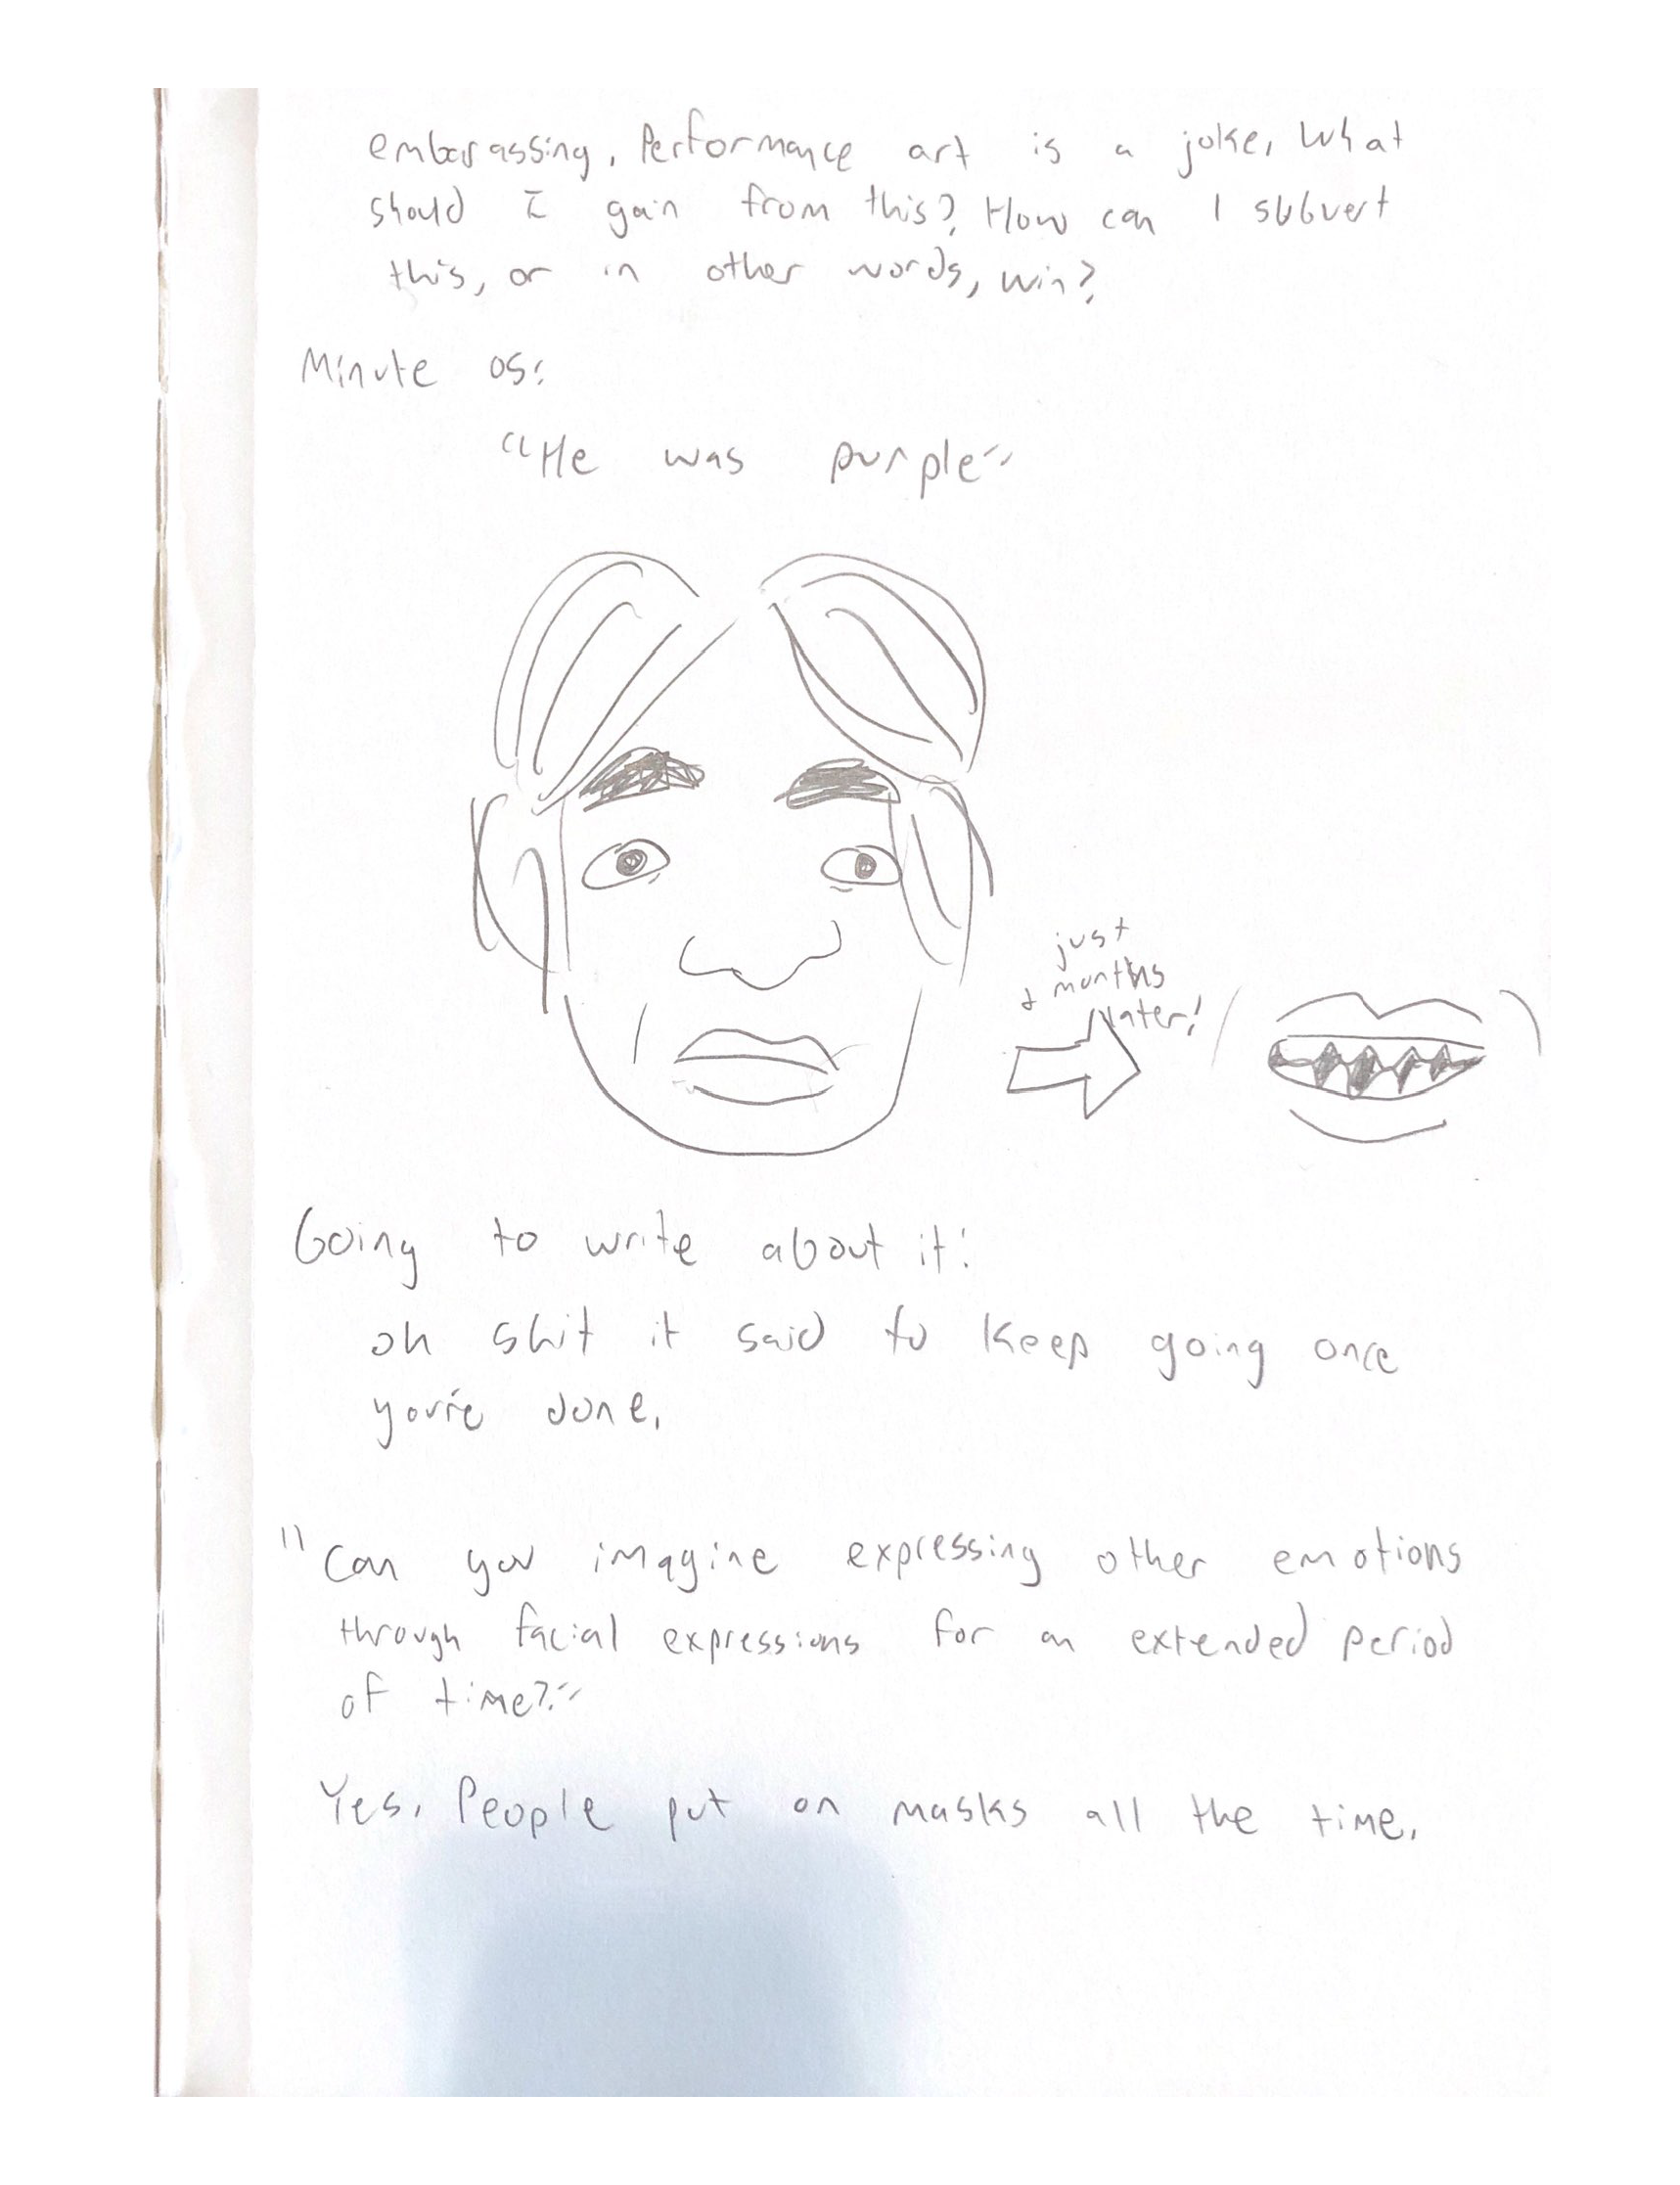 embarassing. Performance art is a joke, What
should I gain from this? How can I subvert
this, or in other words, win?
Minute 05:
"He was purple"
just
months
later!
Going to write about it:
oh shit it said to keep going once
you're done.
"Can you imagine expressing other emotions
through facial expressions for an extended period
of time?"
Yes. People put on masks all the time.